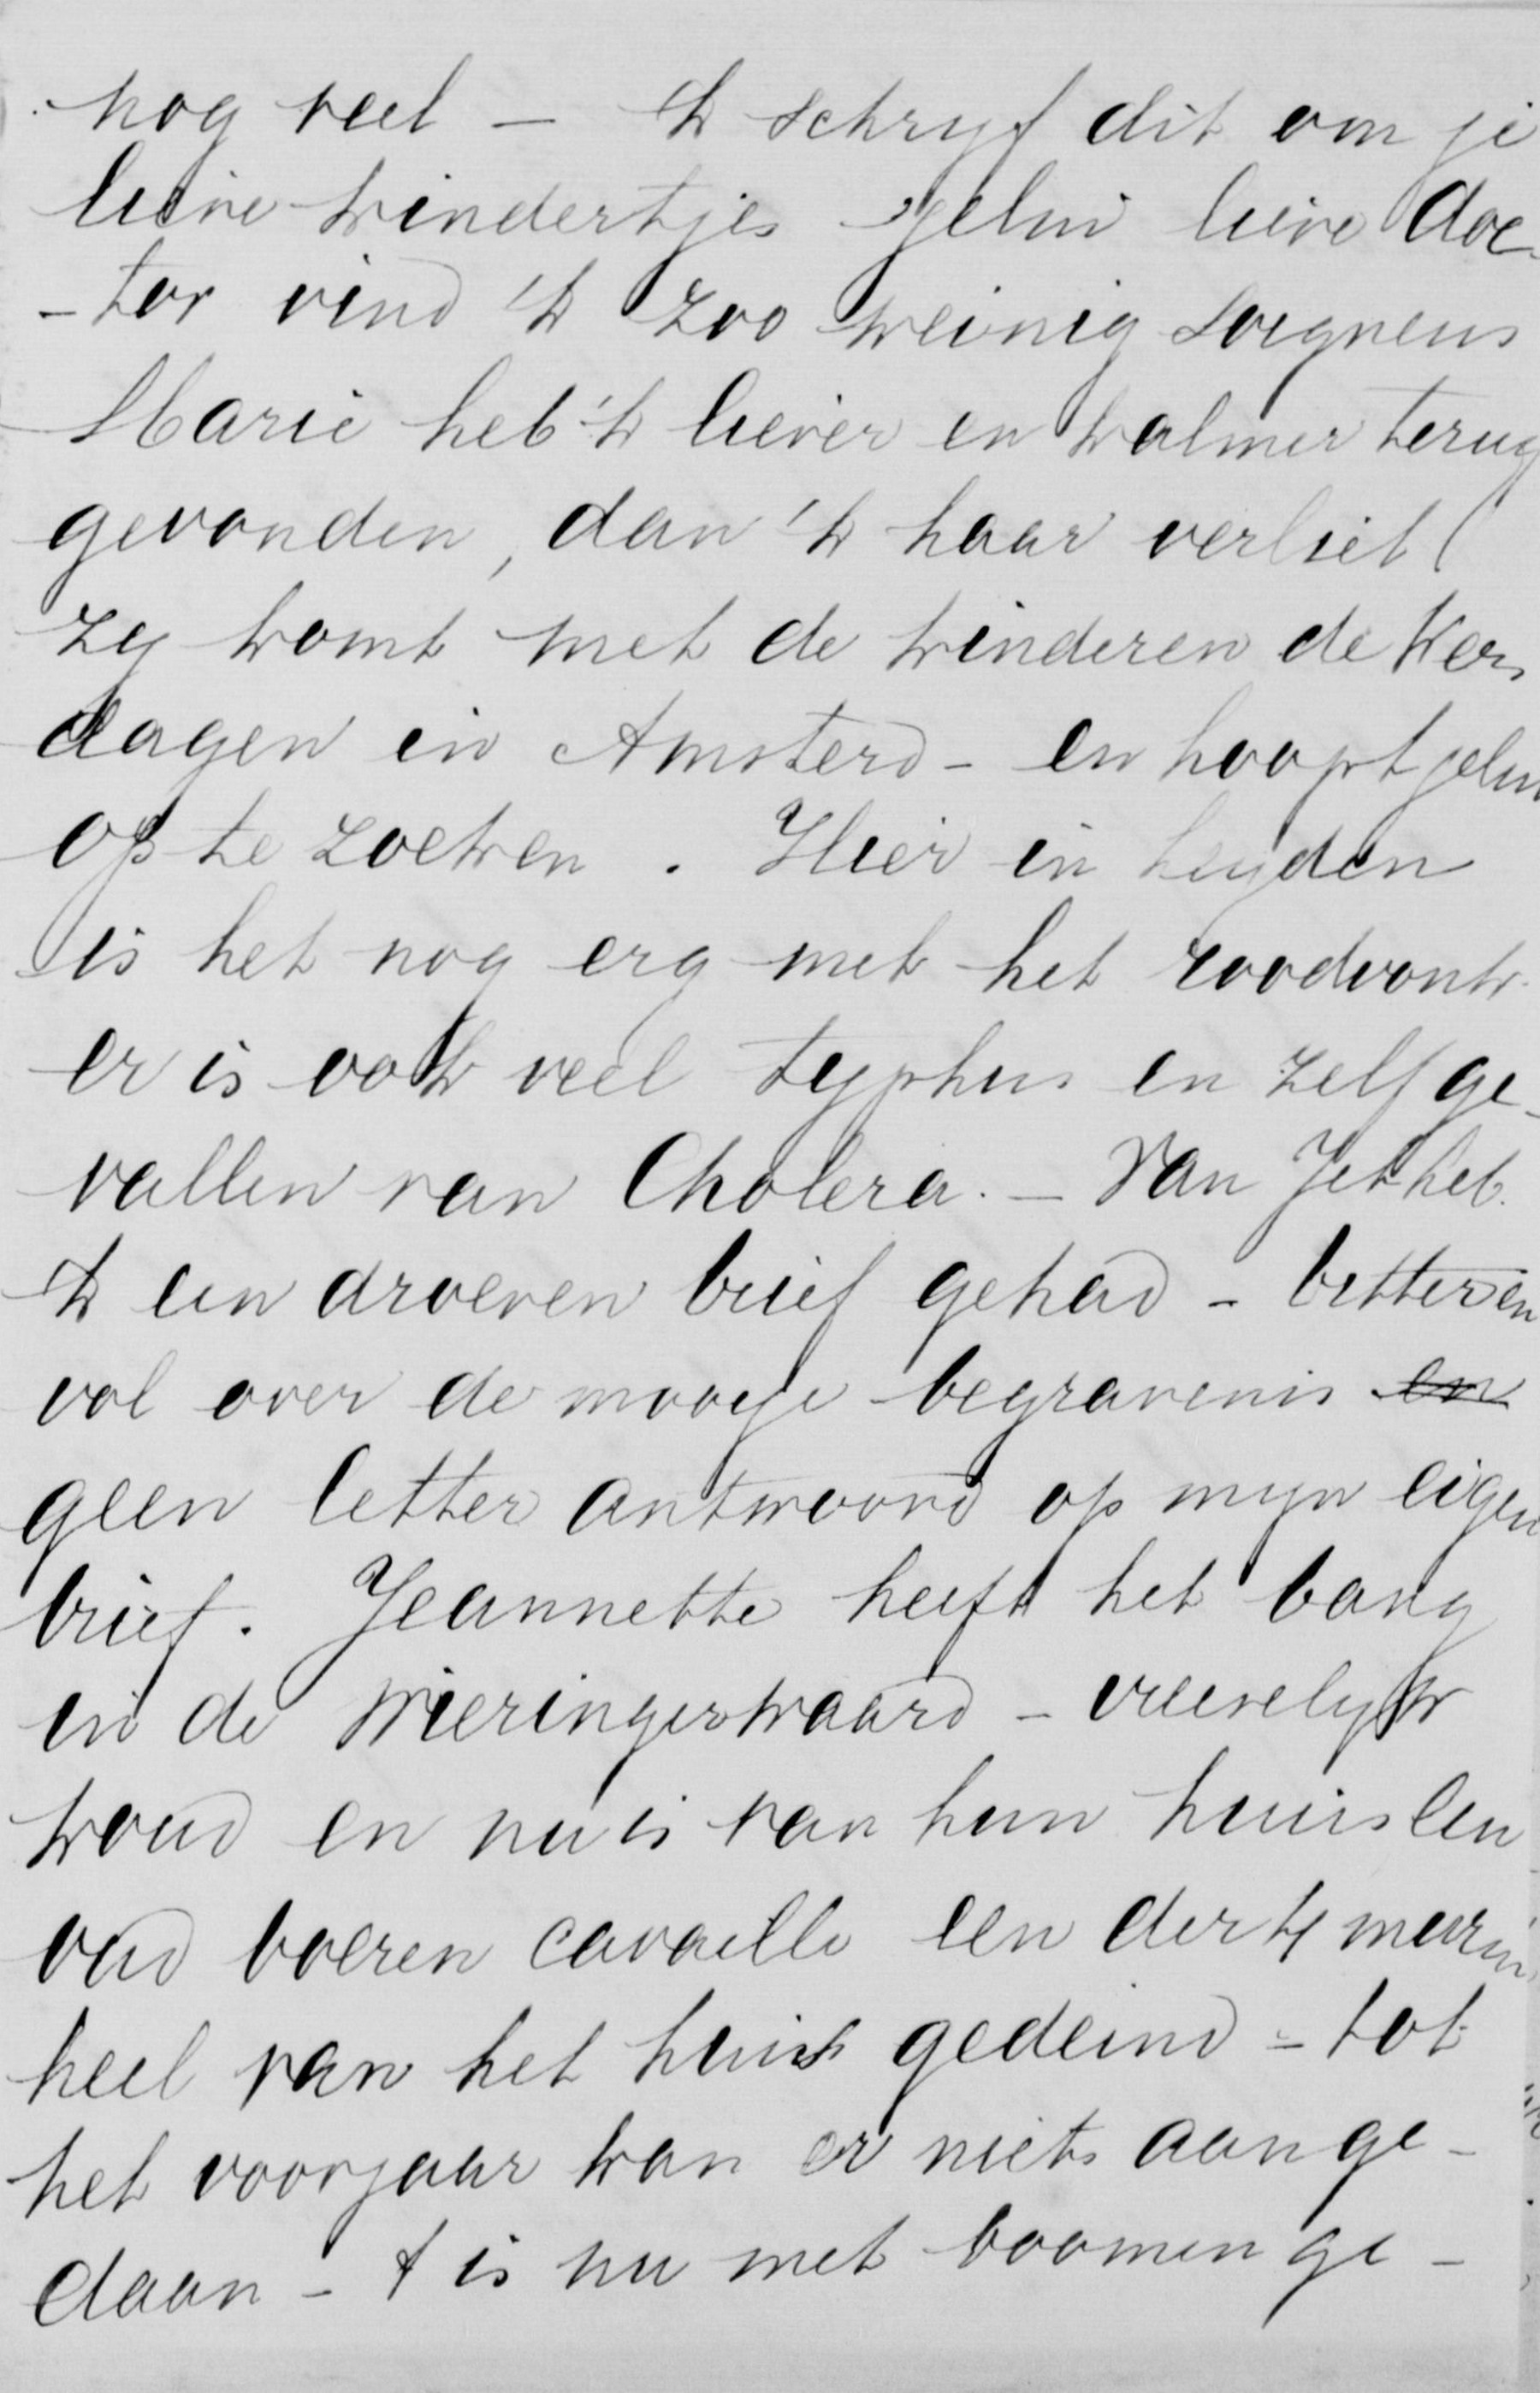 nog veel – 'k schryf dit om je
lieve kindertjes jelui lieve doc-
-tor vind 'k zoo weinig soigneus
Marie heb 'k liever en kalmer terug
gevonden, dan 'k haar verliet (
zy komt met de kinderen de Kers
dagen in Amsterd – en hoopt jelui
op te zoeken . Hier in Leyden
is het nog erg met het roodvonk.
er is ook veel typhus en zelf ge-
vallen van Cholera. – Van Jet heb
'k een droeven brief gehad –
vol over de mooye begravenis en
geen letter antwoord op myn eigen
brief. Jeannette heeft het bang
in de Wieringerwaard – vreeselyk
koud en nu is van hun huis een
oud boeren cavaille een derde muur
heel van het huis gedeind – tot
het voorjaar kan er niets aan ge-
daan – 't is nu met boomen ge-